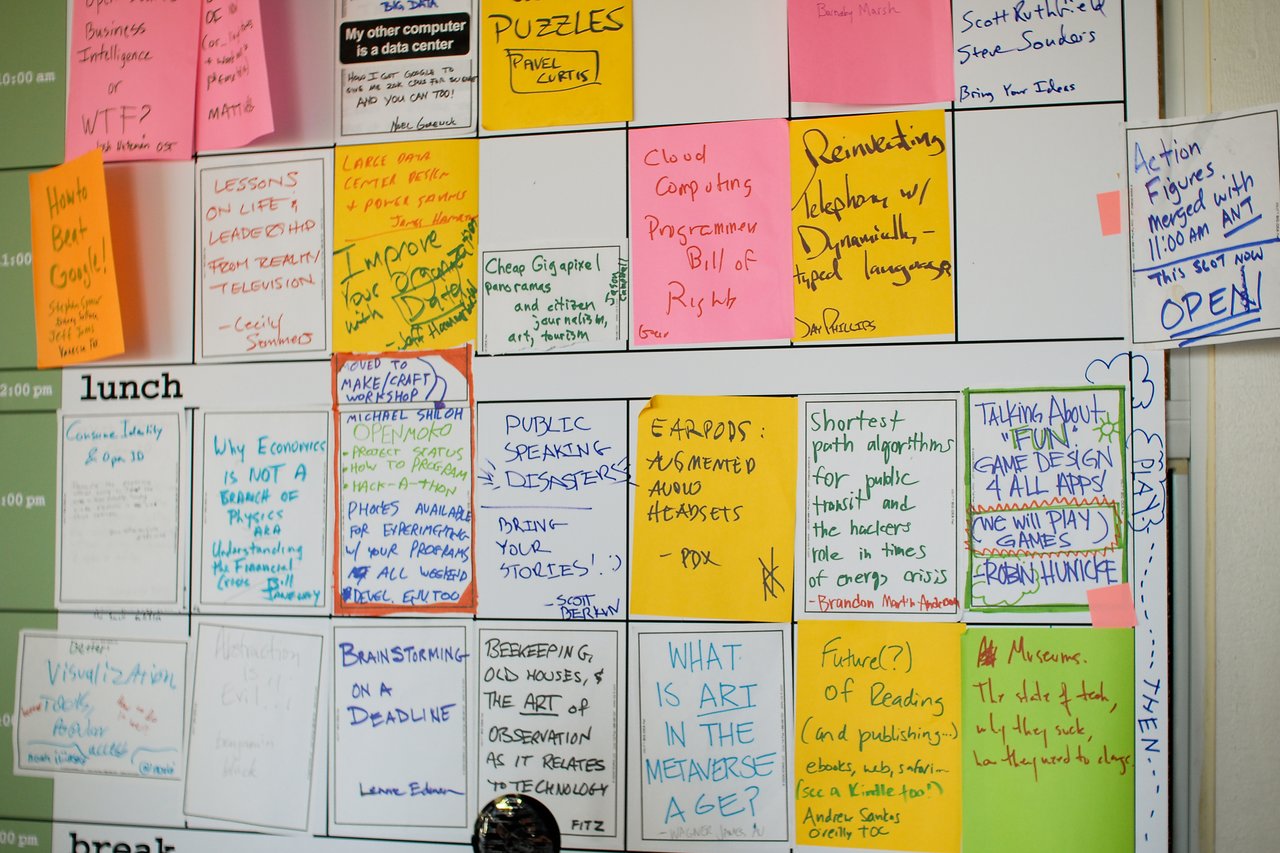 Business
Intelligence
or
WTF?
OF
MATT
BIG DATA
My other computer
is a data center
HOW I GOT GOOGLE TO
GIVE ME 20K CPUS FOR SCIENCE
AND YOU CAN TOO!
PUZZLES
PAVEL
CURTIS
Barnaby Marsh
Scott Ruthfield
Steve Souders
Bring Your Ideas
10:00 am
How to
Beat
Google!
LESSONS
ON LIFE &
LEADERSHIP
FROM REALITY
TELEVISION
- Cecily
Sommers
LARGE DATA
CENTER DESIGN
+ POWER SAVINGS
James Hamilton
Improve
Your
with
Data
Cheap Gigapixel
panoramas
and citizen
journalism,
art, tourism
Jason
Campbell
Cloud
Computing
Programmer
Bill of
Rights
Reinventing
Telephony w/
Dynamically-
typed languages
JAY PHILLIPS
Action
Figures
merged with
11:00 AM ANT
This SLOT NOW
OPEN
1:00 am
2:00 pm
lunch
Consume Identity
& Open ID
Why Economics
IS NOT A
BRANCH OF
Physics
AKA
Understanding
the Financial
Crisis Bill
Janeway
MOVED TO
MAKE/CRAFT
WORKSHOP
MICHAEL SHILOH
OPENMOKO
• PROJECT STATUS
• HOW TO PROGRAM
• HACK-A-THON
PHONES AVAILABLE
FOR EXPERIMENTING
W/ YOUR PROGRAMS
ALL WEEKEND
DEVEL ENV TOO
PUBLIC
SPEAKING
DISASTERS
BRING
YOUR
STORIES! :)
- SCOTT
BERKUN
EARPODS:
AUGMENTED
AUDIO
HEADSETS
- PDX
Shortest
path algorithms
for public
transit and
the hackers
role in times
of energy crisis
- Brandon Martin Anderson
TALKING About
"FUN":
GAME DESIGN
4 ALL APPS!
(WE WILL PLAY)
GAMES
- ROBIN HUNICKE
PLAY
THEN
:00 pm
Visualization
Tools,
access
Abstraction
is
Evil!!!
benjamin
black
BRAINSTORMING
ON A
DEADLINE
BEEKEEPING,
OLD HOUSES, &
THE ART of
OBSERVATION
AS IT RELATES
TO TECHNOLOGY
FITZ
WHAT
IS ART
IN THE
METAVERSE
AGE?
- WAGNER JAMES AU
Future(?)
of Reading
(and publishing...)
ebooks, web, safari...
(see a Kindle too!)
Andrew Savikas
O'reilly TOC
Museums.
The state of tech,
why they suck,
how they need to change
:00 pm
break